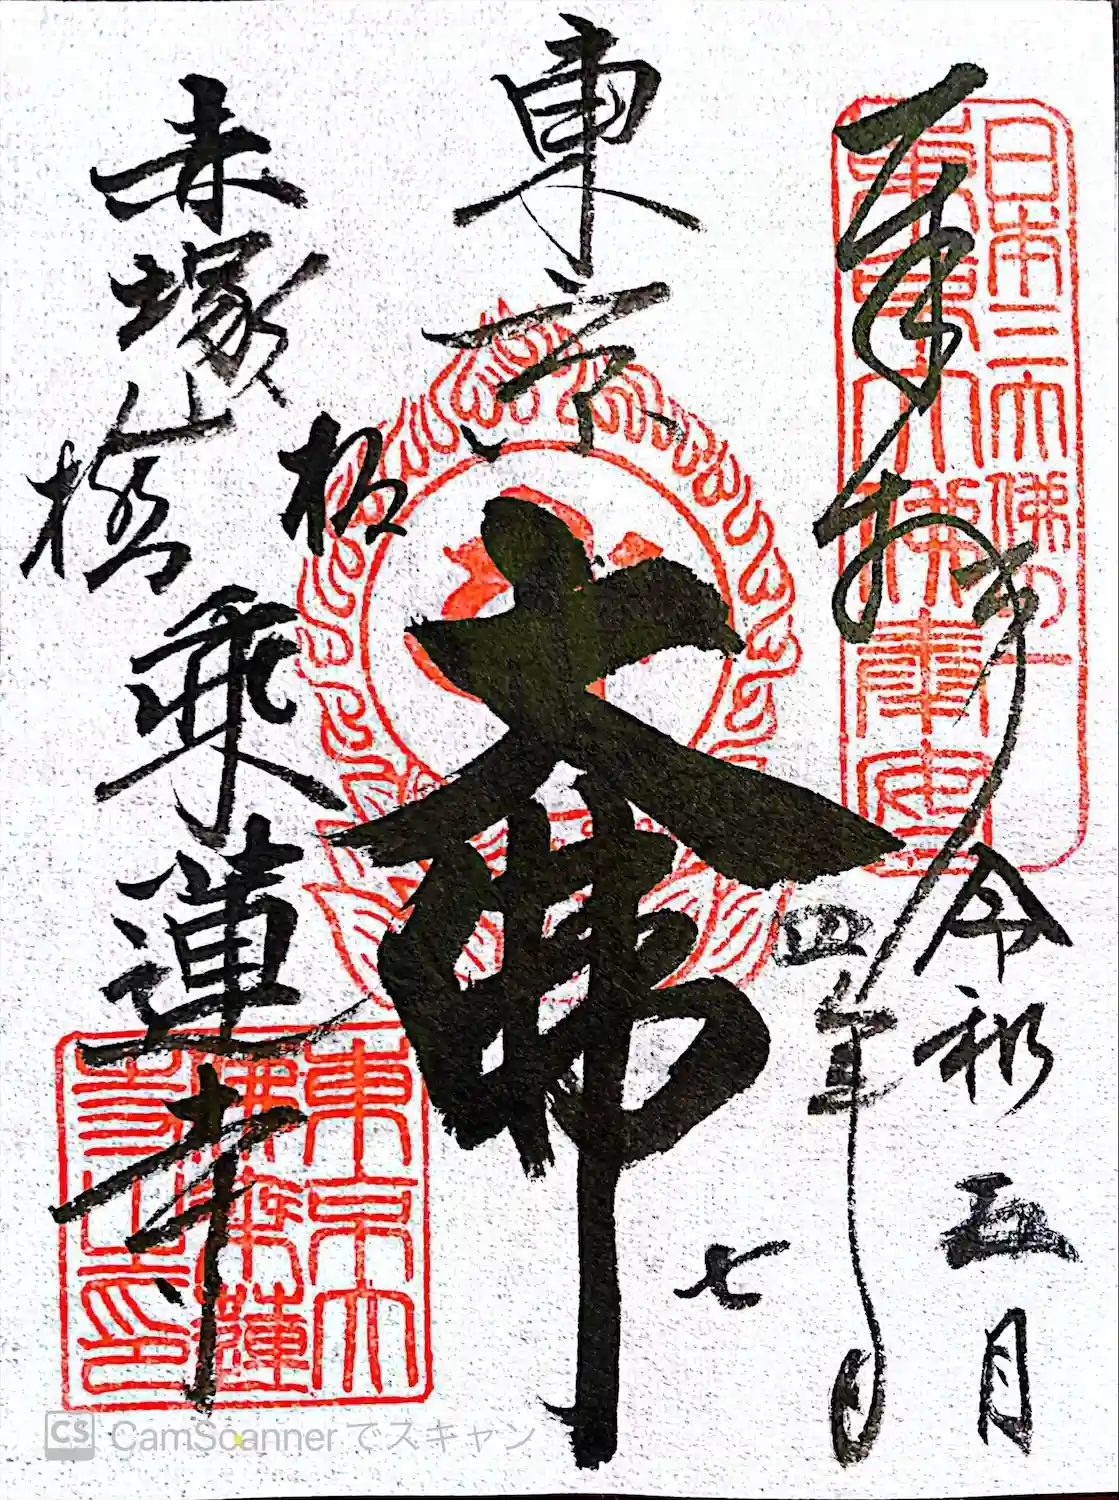 奉拝
日本三大佛の一
東京大佛奉安
令和四年
五月七日
東京
大佛
板橋
赤塚山
乘蓮寺
東京大
佛乘蓮
寺之印
CS CamScanner でスキャン